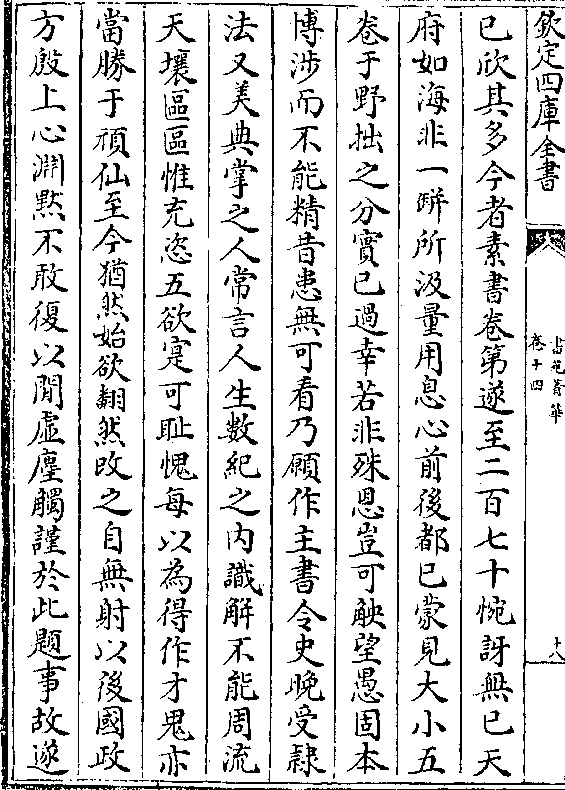 欽定四庫全書
書苑菁華
卷十四
十八
已欣其多今者素書卷第遂至二百七十惋訝無已天
府如海非一缾所汲量用息心前後都已蒙見大小五
卷于野拙之分實已過幸若非殊恩豈可觖望愚固本
博涉而不能精昔患無可看乃願作主書令史晚受隸
法又羡典掌之人常言人生數紀之内識解不能周流
天壤區區惟充恣五欲寔可耻愧每以為得作才鬼亦
當勝于頑仙至今猶然始欲翻然改之自無射以後國政
方殷上心淵黙不敢復以閒虛塵觸謹於此題事故遂